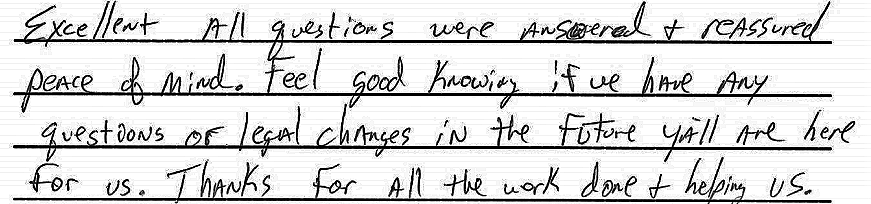 Excellent All questions were answered + reassured
peace of mind. Feel good knowing if we have any
questions or legal changes in the future yall are here
for us. Thanks for all the work done + helping us.